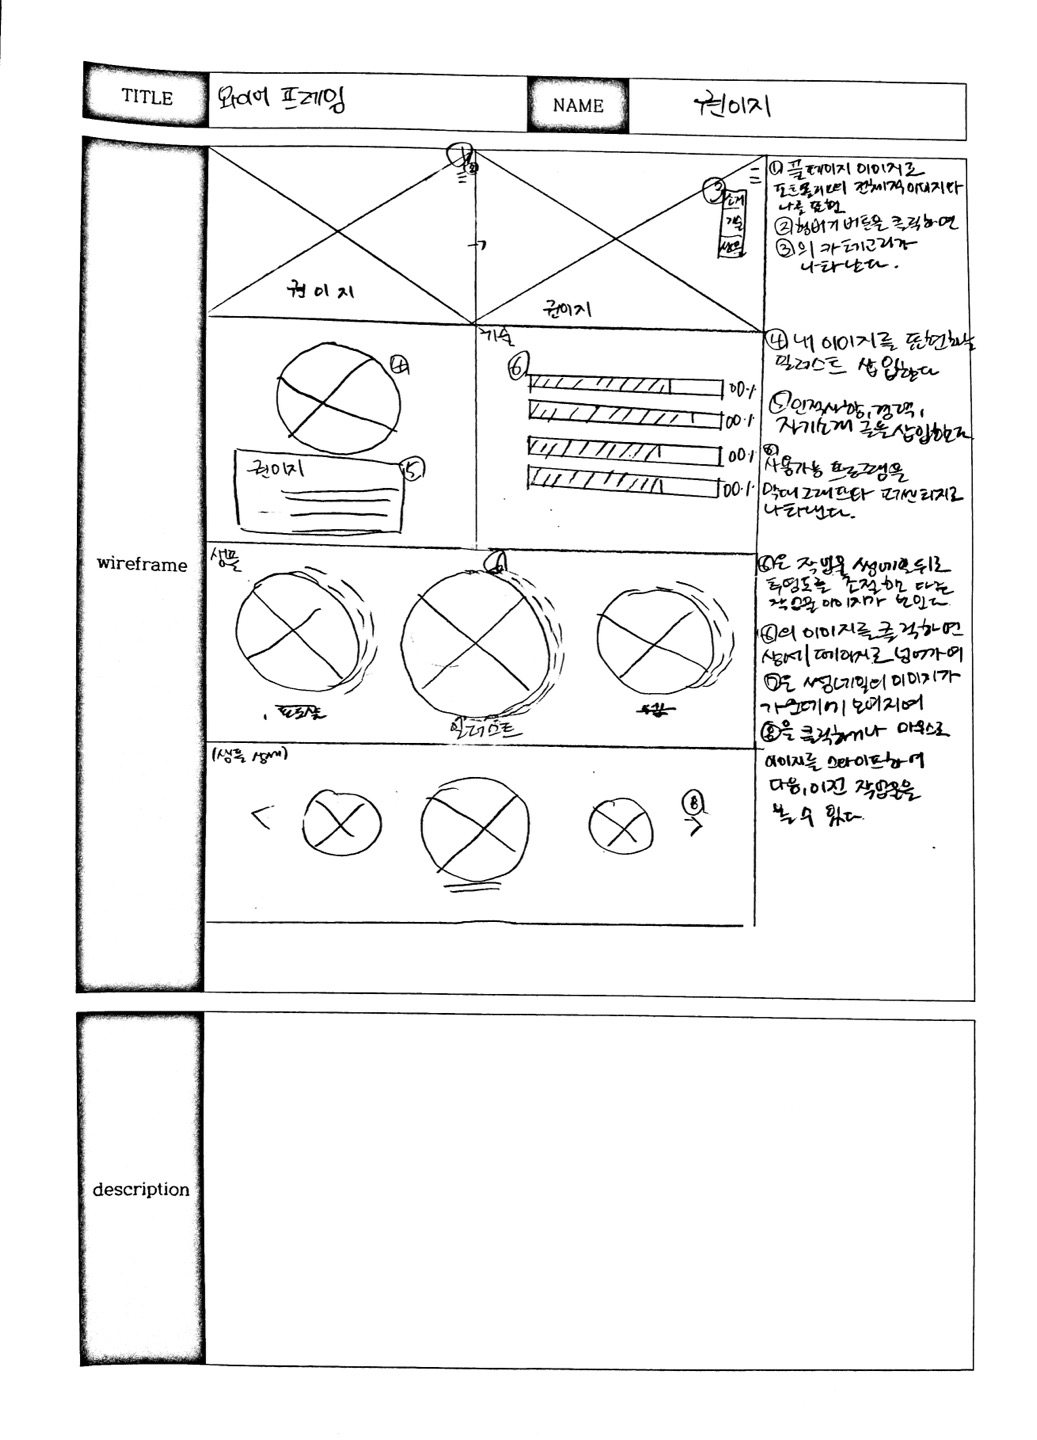 TITLE
와이어 프레임
NAME
권이지
wireframe
①
②
권이지
③
소개
기술
샘플
권이지
① 풀페이지 이미지로
포트폴리오의 전체적 이미지와
나를 표현
② 햄버거 버튼을 클릭하면
③의 카테고리가
나타난다.
④
⑤
권이지
기술
⑥
00%
00%
00%
00%
④ 내 이미지를 표현하는
일러스트 삽입한다
⑤ 인적사항, 경력,
자기소개 글을 삽입한다
⑥
사용가능 프로그램을
막대그래프와 퍼센티지로
나타낸다.
샘플
⑥
일러스트
⑥은 작업물 썸네일 뒤로
투명도를 조절한 다른
작업물 이미지가 보인다.
⑥의 이미지를 클릭하면
상세페이지로 넘어가며
⑦은 썸네일의 이미지가
가운데에 보여지며
⑧을 클릭하거나 마우스로
이미지를 스와이프하여
다음, 이전 작업물을
볼 수 있다.
(샘플 상세)
<
⑧
>
description